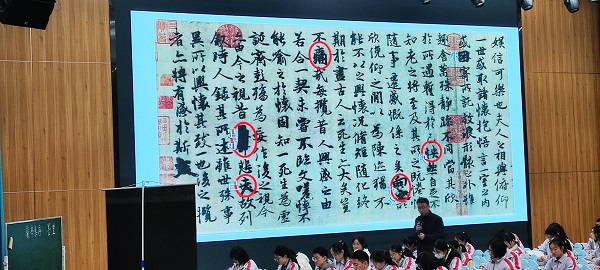 娛信可樂也夫人之相與俯仰
一世或取諸懷抱悟言一室之內
或因寄所託放浪形骸之外雖
趣舍萬殊靜躁不同當其欣
於所遇蹔得於己快然自足不
知老之將至及其所之既惓情
隨事遷感慨係之矣向之所
欣俛仰之閒以為陳迹猶不
能不以之興懷況脩短隨化終
期於盡古人云死生亦大矣豈
不痛哉每攬昔人興感之由
若合一契未嘗不臨文嗟悼不
能喻之於懷固知一死生為虛
誕齊彭殤為妄作後之視今
亦由今之視昔悲夫故列
敘時人錄其所述雖世殊事
異所以興懷其致一也後之攬
者亦將有感於斯